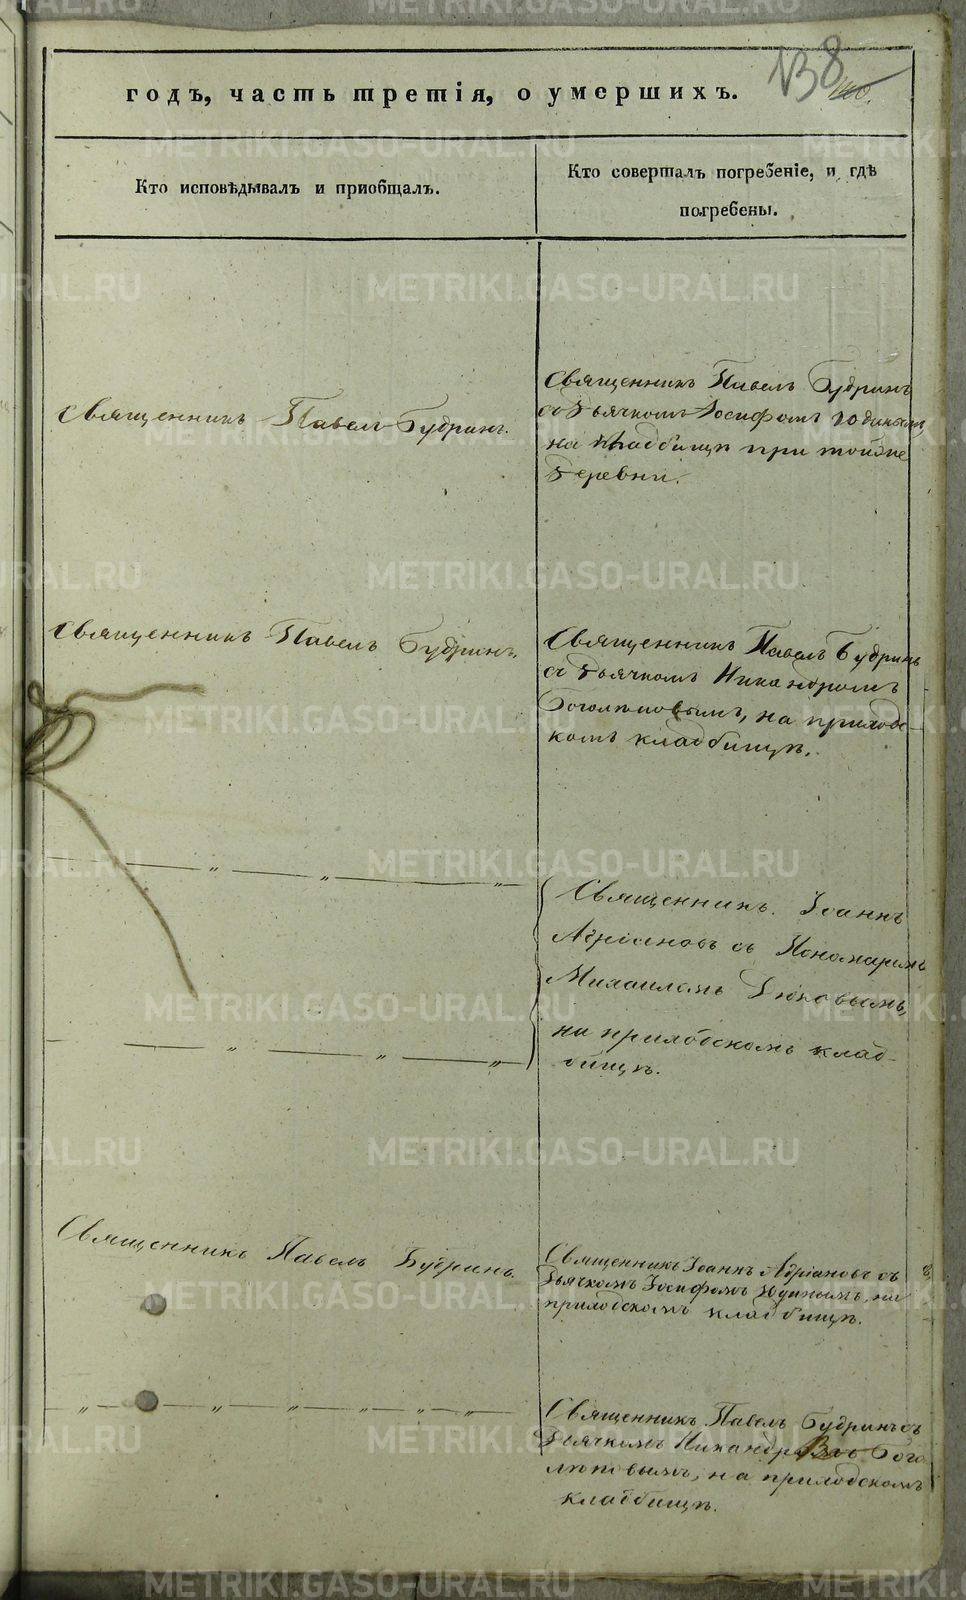 138
годъ, часть третія, о умершихъ.
Кто исповѣдывалъ и пріобщалъ.
Кто совершалъ погребеніе, и гдѣ
погребены.
Священникъ Павелъ Будринъ.
Священникъ Павелъ Будринъ
съ Дьячкомъ Іосифомъ Юдинымъ
на кладбищѣ при тойже
деревни.
Священникъ Павелъ Будринъ.
Священникъ Павелъ Будринъ
съ Дьячкомъ Никандромъ
Боголѣповымъ, на приход-
комъ кладбищѣ.
Священникъ Іоаннъ
Адріановъ съ Пономаремъ
Михаиломъ
на приходскомъ клад-
бищѣ.
Священникъ Павелъ Будринъ.
Священникъ Іоаннъ Адріановъ съ
Дьячкомъ Іосифомъ Юдинымъ, на
приходскомъ кладбищѣ.
Священникъ Павелъ Будринъ съ
Дьячкомъ Бого
лѣповымъ, на приходскомъ
кладбищѣ.
METRIKI.GASO-URAL.RU